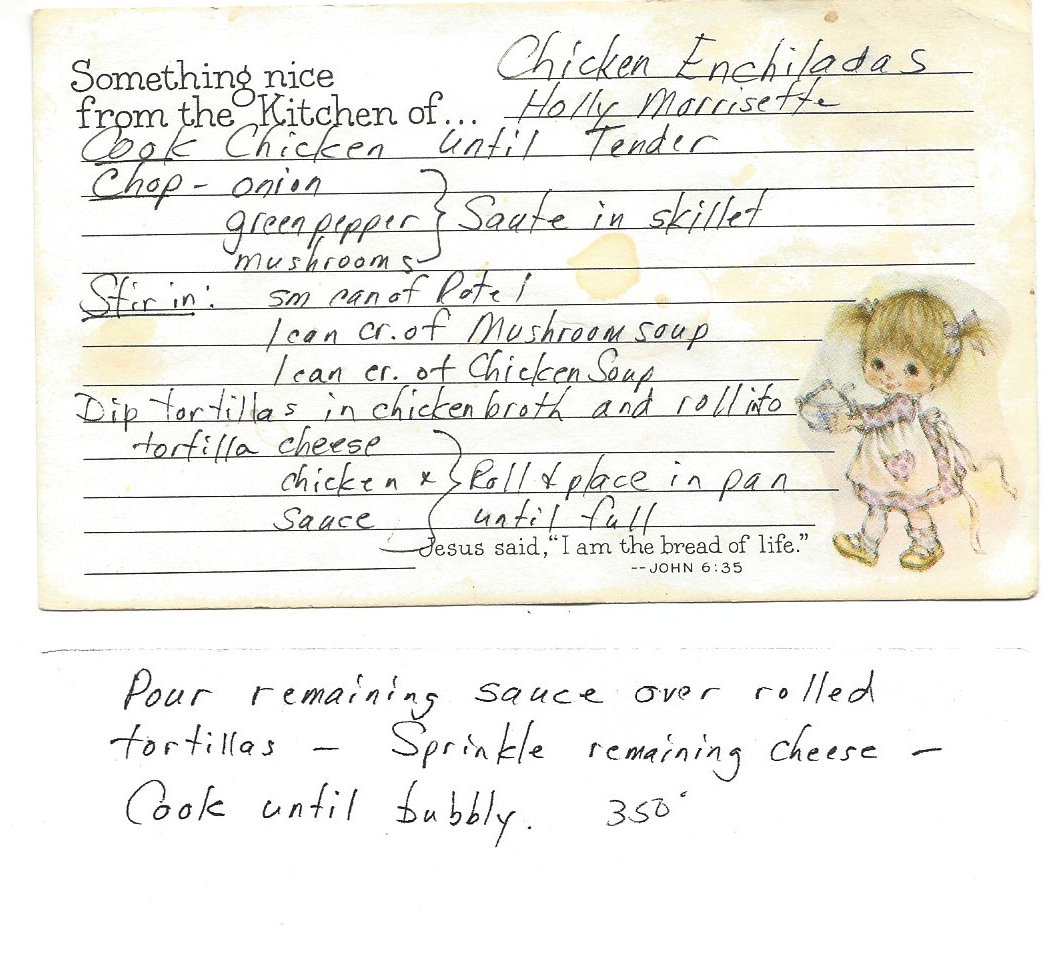 Chicken Enchiladas
Something nice
from the Kitchen of... Holly Morrisette
Cook Chicken until Tender
Chop - onion
green pepper } Saute in skillet
mushrooms
Stir in: sm can of Rotel
1 can cr. of Mushroom soup
1 can cr. of Chicken Soup
Dip tortillas in chicken broth and roll into
tortilla cheese
chicken & } Roll & place in pan
sauce until full
Jesus said, “I am the bread of life.”
--JOHN 6:35
Pour remaining sauce over rolled
tortillas - Sprinkle remaining cheese -
Cook until bubbly. 350°